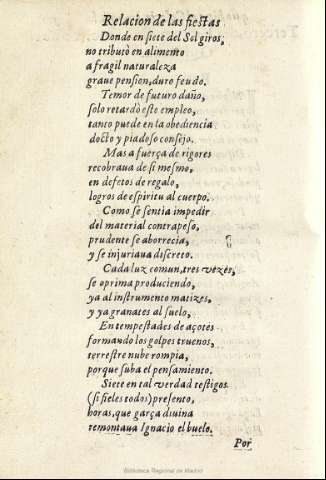 Relacion de las fiestas
Donde en siete del Sol giros,
no tributò en alimento
a fragil naturaleza
graue pension, duro feudo.
Temor de futuro daño,
solo retardò este empleo,
tanto puede en la obediencia
docto y piadoso consejo.
Mas a fuerça de rigores
recobraua de si mesmo,
en defetos de regalo,
logros de espiritu al cuerpo.
Como se sentia impedir
del material contrapeso,
prudente se aborrecia,
y se injuriaua discreto.
Cada luz comun, tres vezes,
se oprima produciendo,
ya al instrumento matizes,
y ya granates al suelo,
En tempestades de açotes
formando los golpes truenos,
terrestre nube rompia,
porque suba el pensamiento.
Siete en tal verdad testigos
(si fieles todos) presento,
horas, que garça diuina
remontaua Ignacio el buelo.
Por
Biblioteca Regional de Madrid